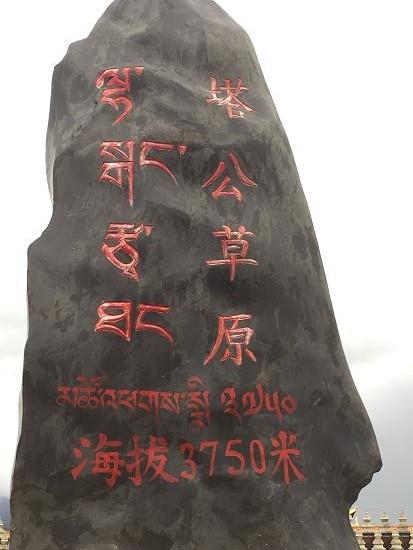 ལྷ་སྒང་རྩྭ་ཐང
塔公草原
མཚོ་འཕགས་སྨི་ ༣༧༥༠
海拔3750米